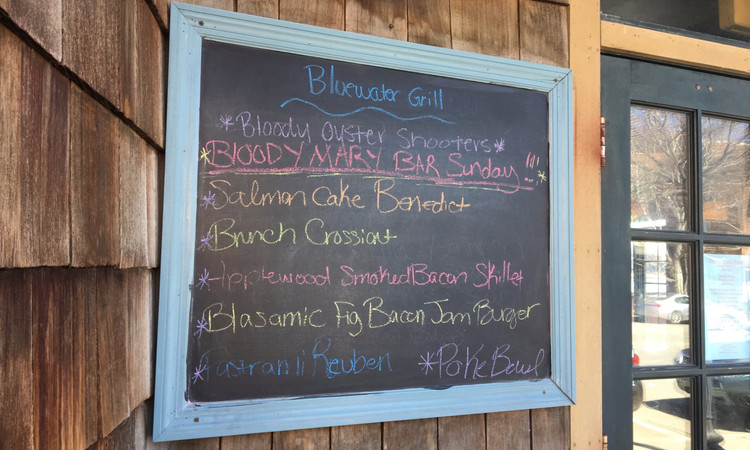 Bluewater Grill
*Bloody Oyster Shooters*
*BLOODY MARY BAR Sunday!!!*
*Salmon Cake Benedict
*Brunch Crossiant
*Applewood Smoked Bacon Skillet
*Blasamic Fig Bacon Jam Burger
*Pastrami Reuben *Poke Bowl